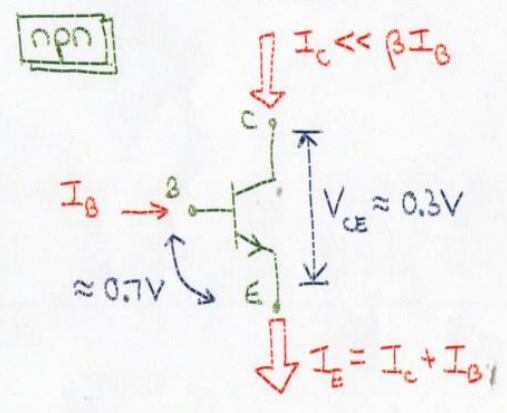 npn
I_C << βI_B
C
I_B
B
V_CE ≈ 0.3V
≈ 0.7V
E
I_E = I_C + I_B